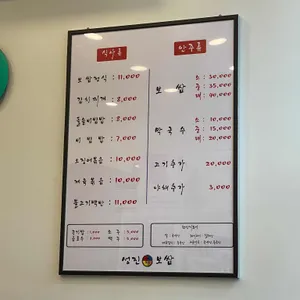 식사류
보쌈정식 : 11,000
김치찌개 : 8,000
돌솥비빔밥 : 8,000
비빔밥 : 7,000
오징어볶음 : 10,000
제육볶음 : 10,000
불고기백반 : 11,000
안주류
보쌈
소 : 30,000
중 : 35,000
대 : 40,000
막국수
소 : 10,000
중 : 15,000
대 : 20,000
고기추가 20,000
야채추가 5,000
공기밥 : 1,000
소주
음료수
맥주
원산지표시
성진보쌈